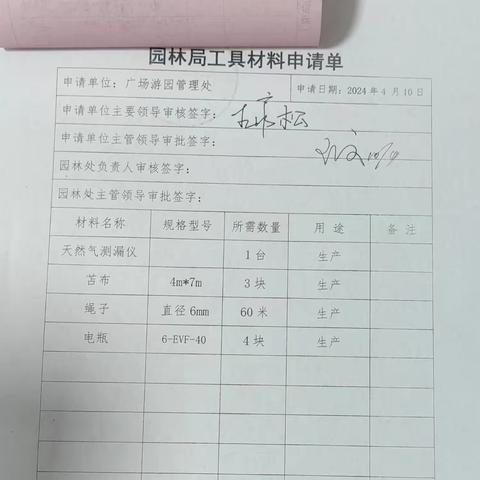 园林局工具材料申请单
申请单位：广场游园管理处 申请日期：2024年4月10日
申请单位主要领导审核签字：
申请单位主管领导审批签字：
园林处负责人审核签字：
园林处主管领导审批签字：
材料名称 规格型号 所需数量 用途 备注
天然气测漏仪 1台 生产
苫布 4m*7m 3块 生产
绳子 直径6mm 60米 生产
电瓶 6-EVF-40 4块 生产